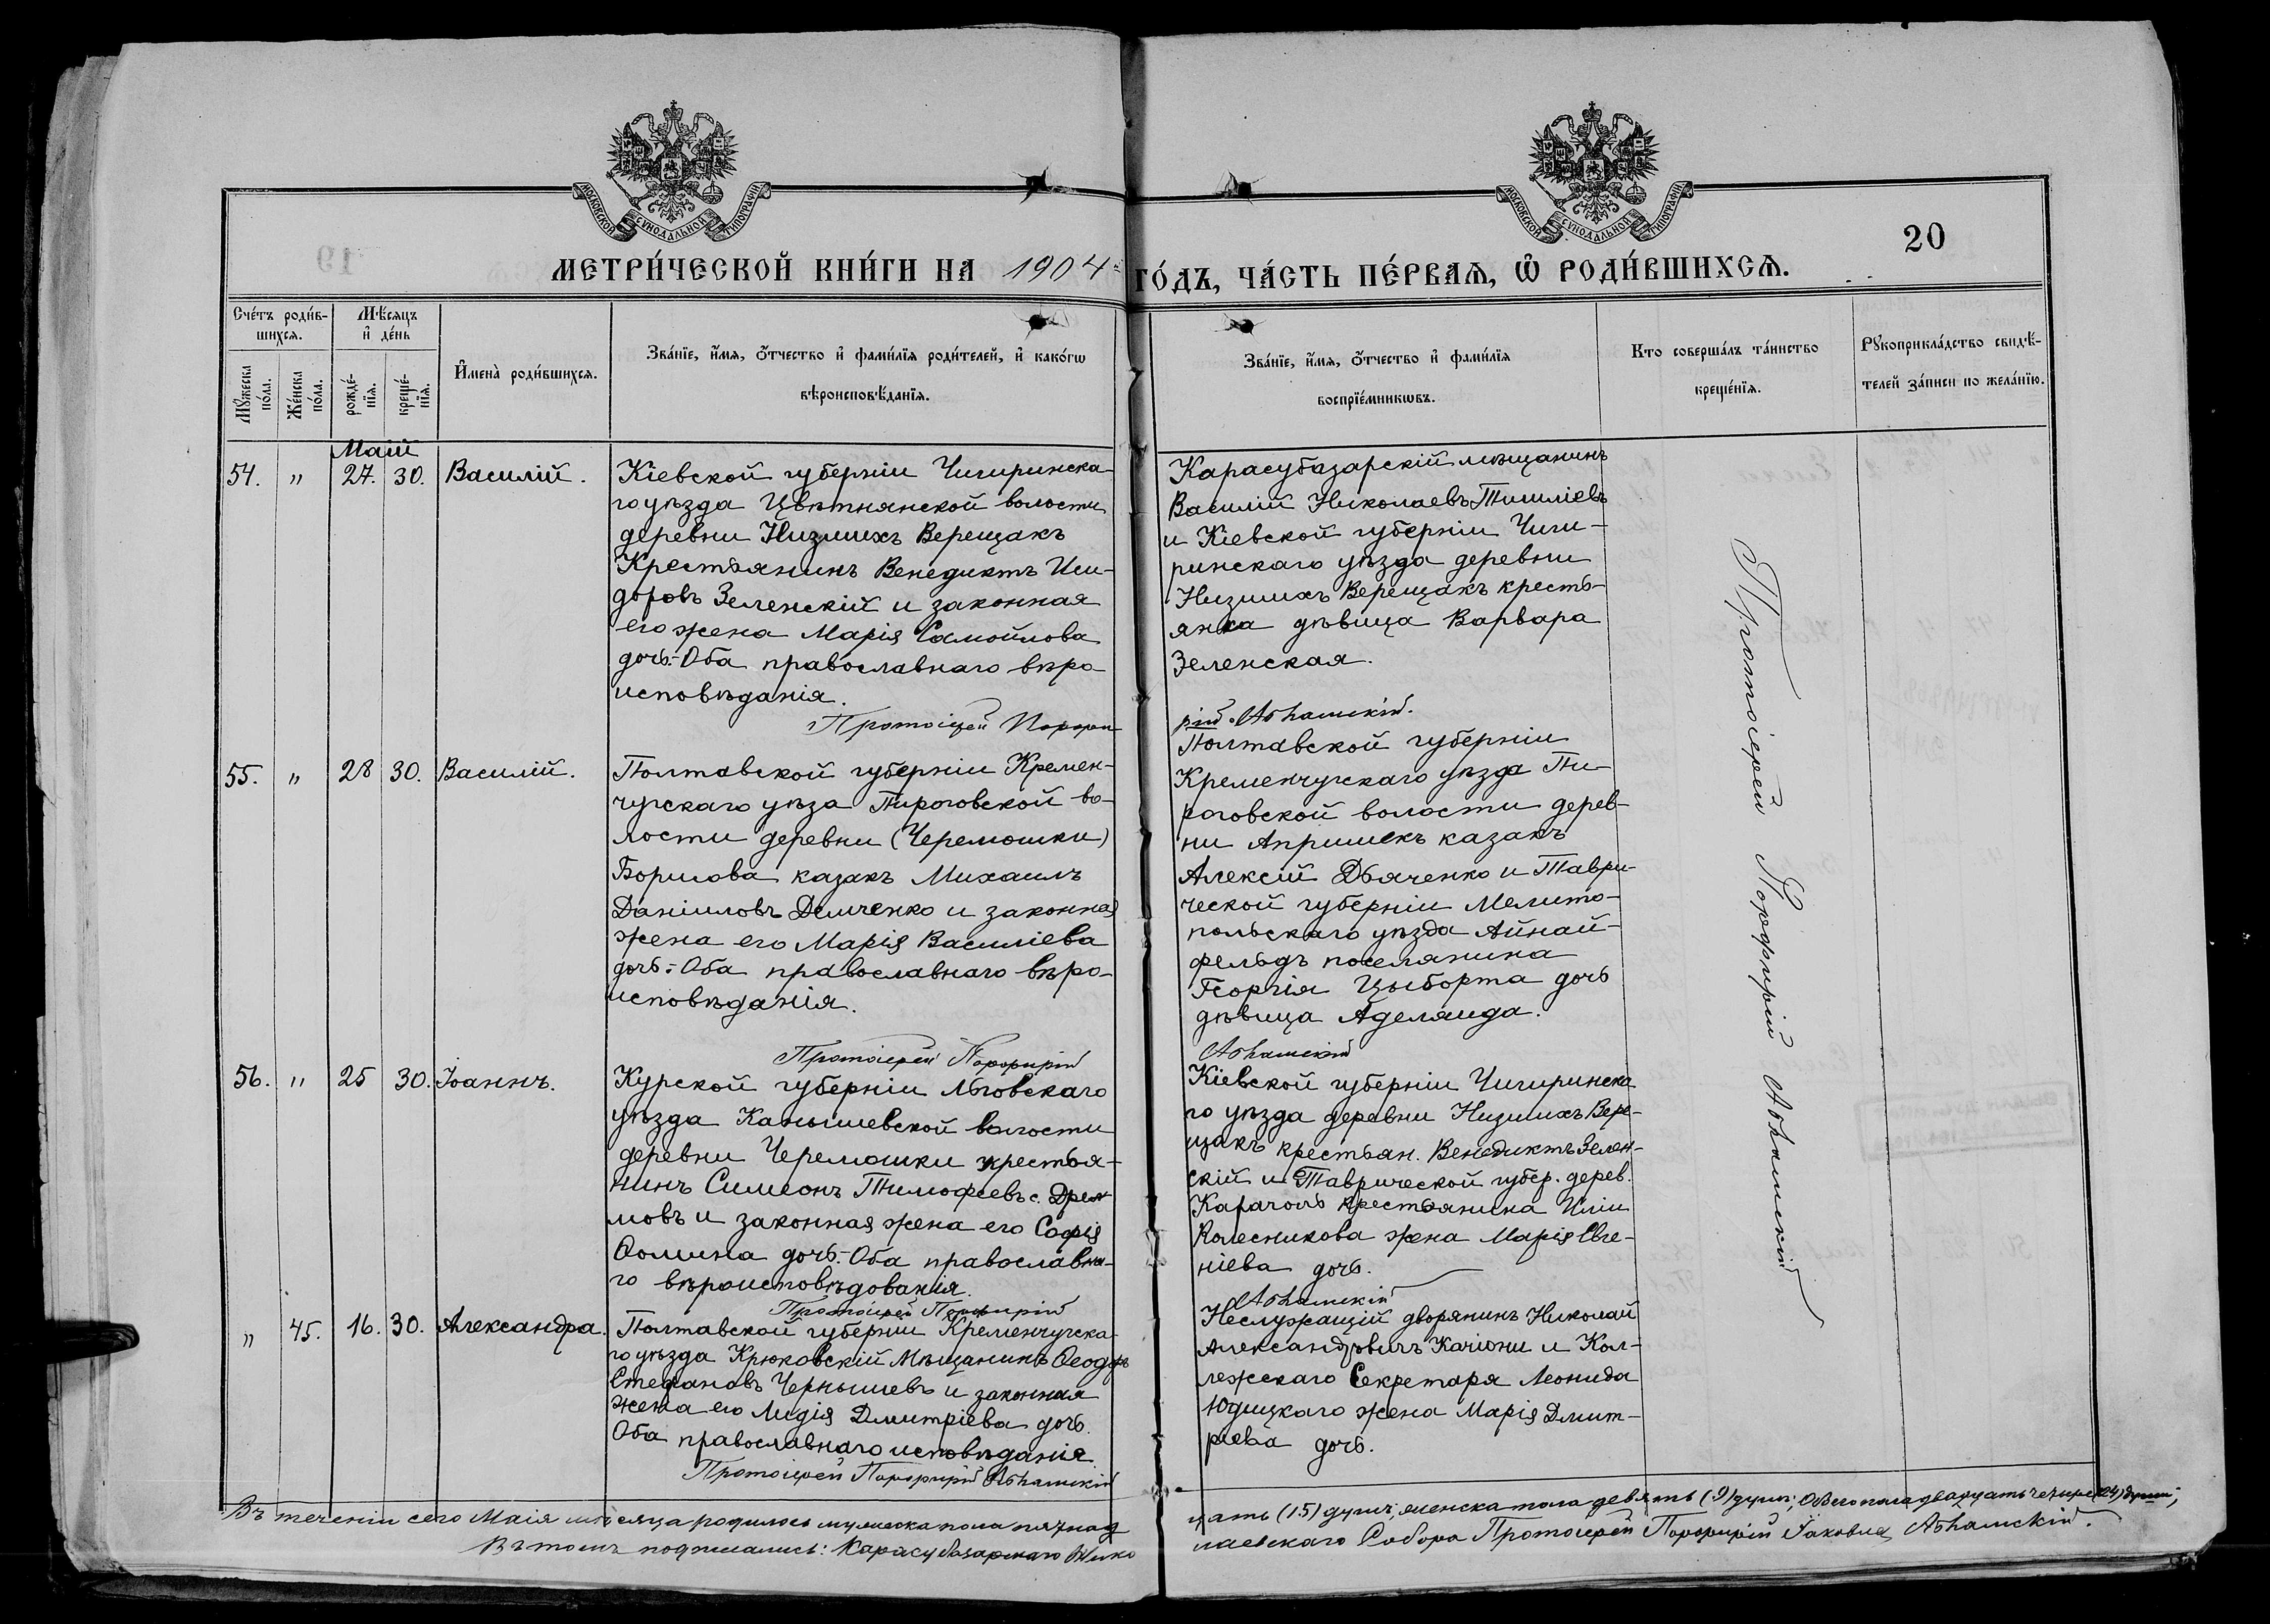 МОСКОВСКОЙ СУНОДАЛЬНОЙ ТИПОГРАФІИ
МОСКОВСКОЙ СУНОДАЛЬНОЙ ТИПОГРАФІИ
20
МЕТРИ́ЧЕСКОЙ КНИ́ГИ НА 1904 ГО́ДЪ, ЧА́СТЬ ПЕ́РВАѦ, Ѡ҆ РОДИ́ВШИХСѦ.
Сче́тъ роди́в-
шихсѧ.
Мꙋ́жеска по́ла.
Же́нска по́ла.
Мѣ́сѧцъ и҆ де́нь
рожде́-
нїѧ.
креще́-
нїѧ.
И҆мена̀ роди́вшихсѧ.
Зва́нїе, и҆́мѧ, ѻ҆́тчество и҆ фами́лїѧ роди́телей, и҆ како́гѡ
вѣроисповѣ́данїѧ.
Зва́нїе, и҆́мѧ, ѻ҆́тчество и҆ фами́лїѧ
воспрїе́мникѡвъ.
Кто соверша́лъ та́инство
креще́нїѧ.
Рꙋкоприкла́дство свидѣ́-
телей за́писи по жела́нїю.
Маій
54. " 27. 30. Василій.
Кіевской губерніи Чигиринска-
го уѣзда Цвѣтнянской волости
деревни Низшихъ Верещакъ
Крестьянинъ Венедиктъ Иси-
доровъ Зеленскій и законная
его жена Марія Самойлова
дочь.-Оба православнаго вѣро
исповѣданія.
Протоіерей Порфи-
Карасубазарскій мѣщанинъ
Василій Николаевъ
и Кіевской губерніи Чиги-
ринскаго уѣзда деревни
Низшихъ Верещакъ кресть-
янка дѣвица Варвара
Зеленская.
рій
55. " 28 30. Василій.
Полтавской губерніи Кремен-
чугскаго уѣза Пироговской во-
лости деревни (Черемошки)
Борисова казакъ Михаилъ
Даніиловъ Демченко и законная
жена его Марія Василіева
дочь.-Оба православнаго вѣро-
исповѣданія.
Протоіерей Порфирій
Полтавской губерніи
Кременчугскаго уѣзда Пи-
роговской волости дерев-
ни Апришекъ казакъ
Алексій Дьяченко и Таври-
ческой губерніи Мелито-
польскаго уѣзда Айнай-
фельдъ поселянина
Георгія Цыборта дочь
дѣвица Аделаида.
56. " 25 30. Іоаннъ.
Курской губерніи Льговскаго
уѣзда Канышевской волости
деревни Черемошки крестья-
нинъ Симеонъ Тимофеевъ с.
мовъ и законная жена его Софія
Ѳомина дочь.-Оба православна-
го вѣроисповѣдованія.
Протоіерей Порфирій
Кіевской губерніи Чигиринска
го уѣзда деревни Низшихъ Вере-
щакъ крестьян. Венедиктъ Зелен-
скій и Таврической губер. дерев.
Карачоль крестьянина Иліи
Колесникова жена Марія Евге-
ніева дочь.
" 45. 16. 30. Александра.
Полтавской губерніи Кременчугска-
го уѣзда Крюковскій Мѣщанинъ Ѳеодоръ
Стефановъ Чернышевъ и законная
жена его Лидія Дмитріева дочь.
Оба православнаго исповѣданія.
Протоіерей Порфирій
Неслужащій дворянинъ Николай
Александровичъ Качіони и Кол-
лежскаго Секретаря Леонида
Юдицкаго жена Марія Дмит-
ріева дочь.
Протоіерей Порфирій
Въ теченіи сего Маія мѣсяца родилось мужеска пола пятнад
цать (15) душъ, женска пола девять (9) душъ; Обоего пола двадцать четыре (24) души;
Въ томъ подписались: Карасубазарскаго Нико
лаевскаго Собора Протоіерей Порфирій Іаковлев